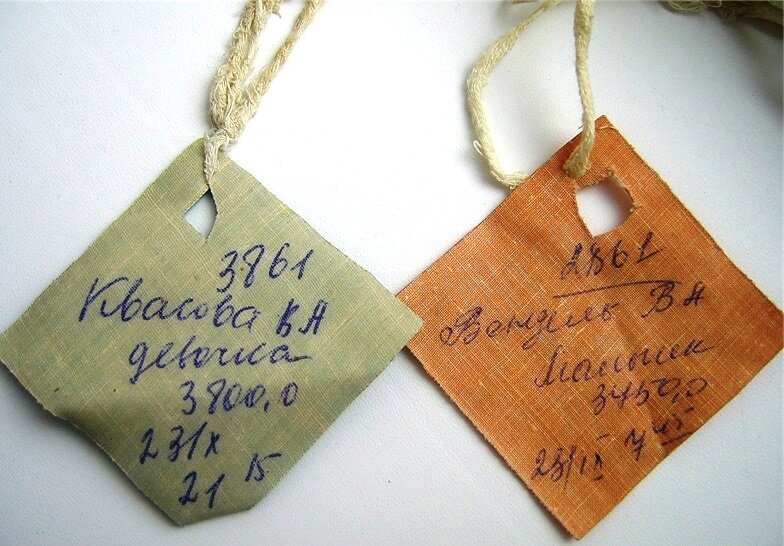 3861
Квасова В А
девочка
3800,0
23 IX
21 15
2861
Вендель В А
Мальчик
3450,0
23/IX 7 45